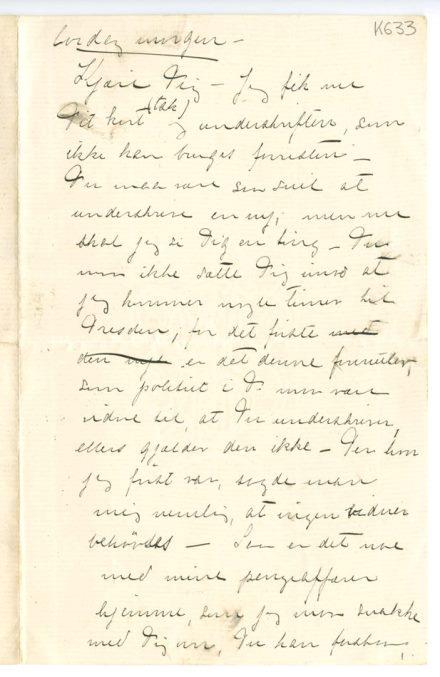 K633
Lordag morgen –
Kjære Dig – Jeg fik nu
Dit kort (tak) og underskriften, som
ikke kan bruges forresten –
Du maa være saa snil at
underskrive en ny; men nu
skal jeg si Dig en ting – Du
maa ikke sætte Dig imod at
jeg kommer nogle timer til
Dresden, for det første med
den nye er det denne formular,
som politiet i D. maa være
vidne til, at Du underskriver,
ellers gjælder den ikke – Der hvor
jeg først var, sagde man
mig nemlig, at ingen vidner
behövdes – Saa er det noe
med mine pengeaffærer
hjemme, som jeg maa snakke
med Dig om, Du kan forstaa,